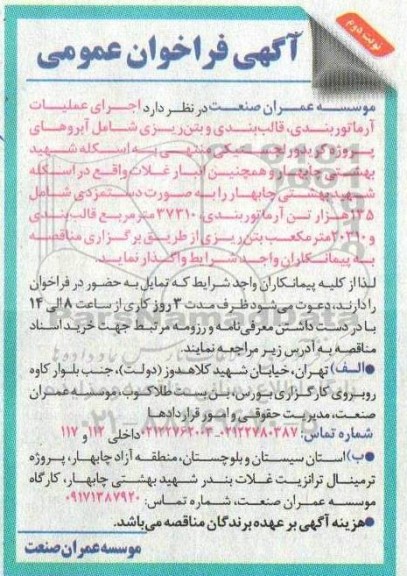 نوبت دوم
آگهی فراخوان عمومی
موسسه عمران صنعت در نظر دارد اجرای عملیات
آرماتوربندی، قالب‌بندی و بتن‌ریزی شامل آبروهای
پروژه کریدور لجستیکی منتهی به اسکله شهید
بهشتی چابهار و همچنین انبار غلات واقع در اسکله
شهید بهشتی چابهار را به صورت دستمزدی شامل
هزار تن آرماتوربندی، ۳۷۳۱۰ مترمربع قالب‌بندی
و مترمکعب بتن‌ریزی از طریق برگزاری مناقصه
به پیمانکاران واجد شرایط واگذار نماید.
لذا از کلیه پیمانکاران واجد شرایط که تمایل به حضور در فراخوان
را دارند، دعوت می‌شود ظرف مدت ۳ روز کاری از ساعت ۸ الی ۱۴
با در دست داشتن معرفی‌نامه و رزومه مرتبط جهت خرید اسناد
مناقصه به آدرس زیر مراجعه نمایند.
●الف) تهران، خیابان شهید کلاهدوز (دولت)، جنب بلوار کاوه
روبروی کارگزاری بورس، بن‌بست طلاکوب، موسسه عمران
صنعت، مدیریت حقوقی و امور قراردادها
شماره تماس: ۰۲۱۲۲۷۸۰۳۸۷_ داخلی ۱۱۲ و ۱۱۷
●ب) استان سیستان و بلوچستان، منطقه آزاد چابهار، پروژه
ترمینال ترانزیت غلات بندر شهید بهشتی چابهار، کارگاه
موسسه عمران صنعت، شماره تماس: ۰۹۱۷۱۳۸۷۹۲۰
●هزینه آگهی بر عهده برندگان مناقصه می‌باشد.
موسسه عمران صنعت